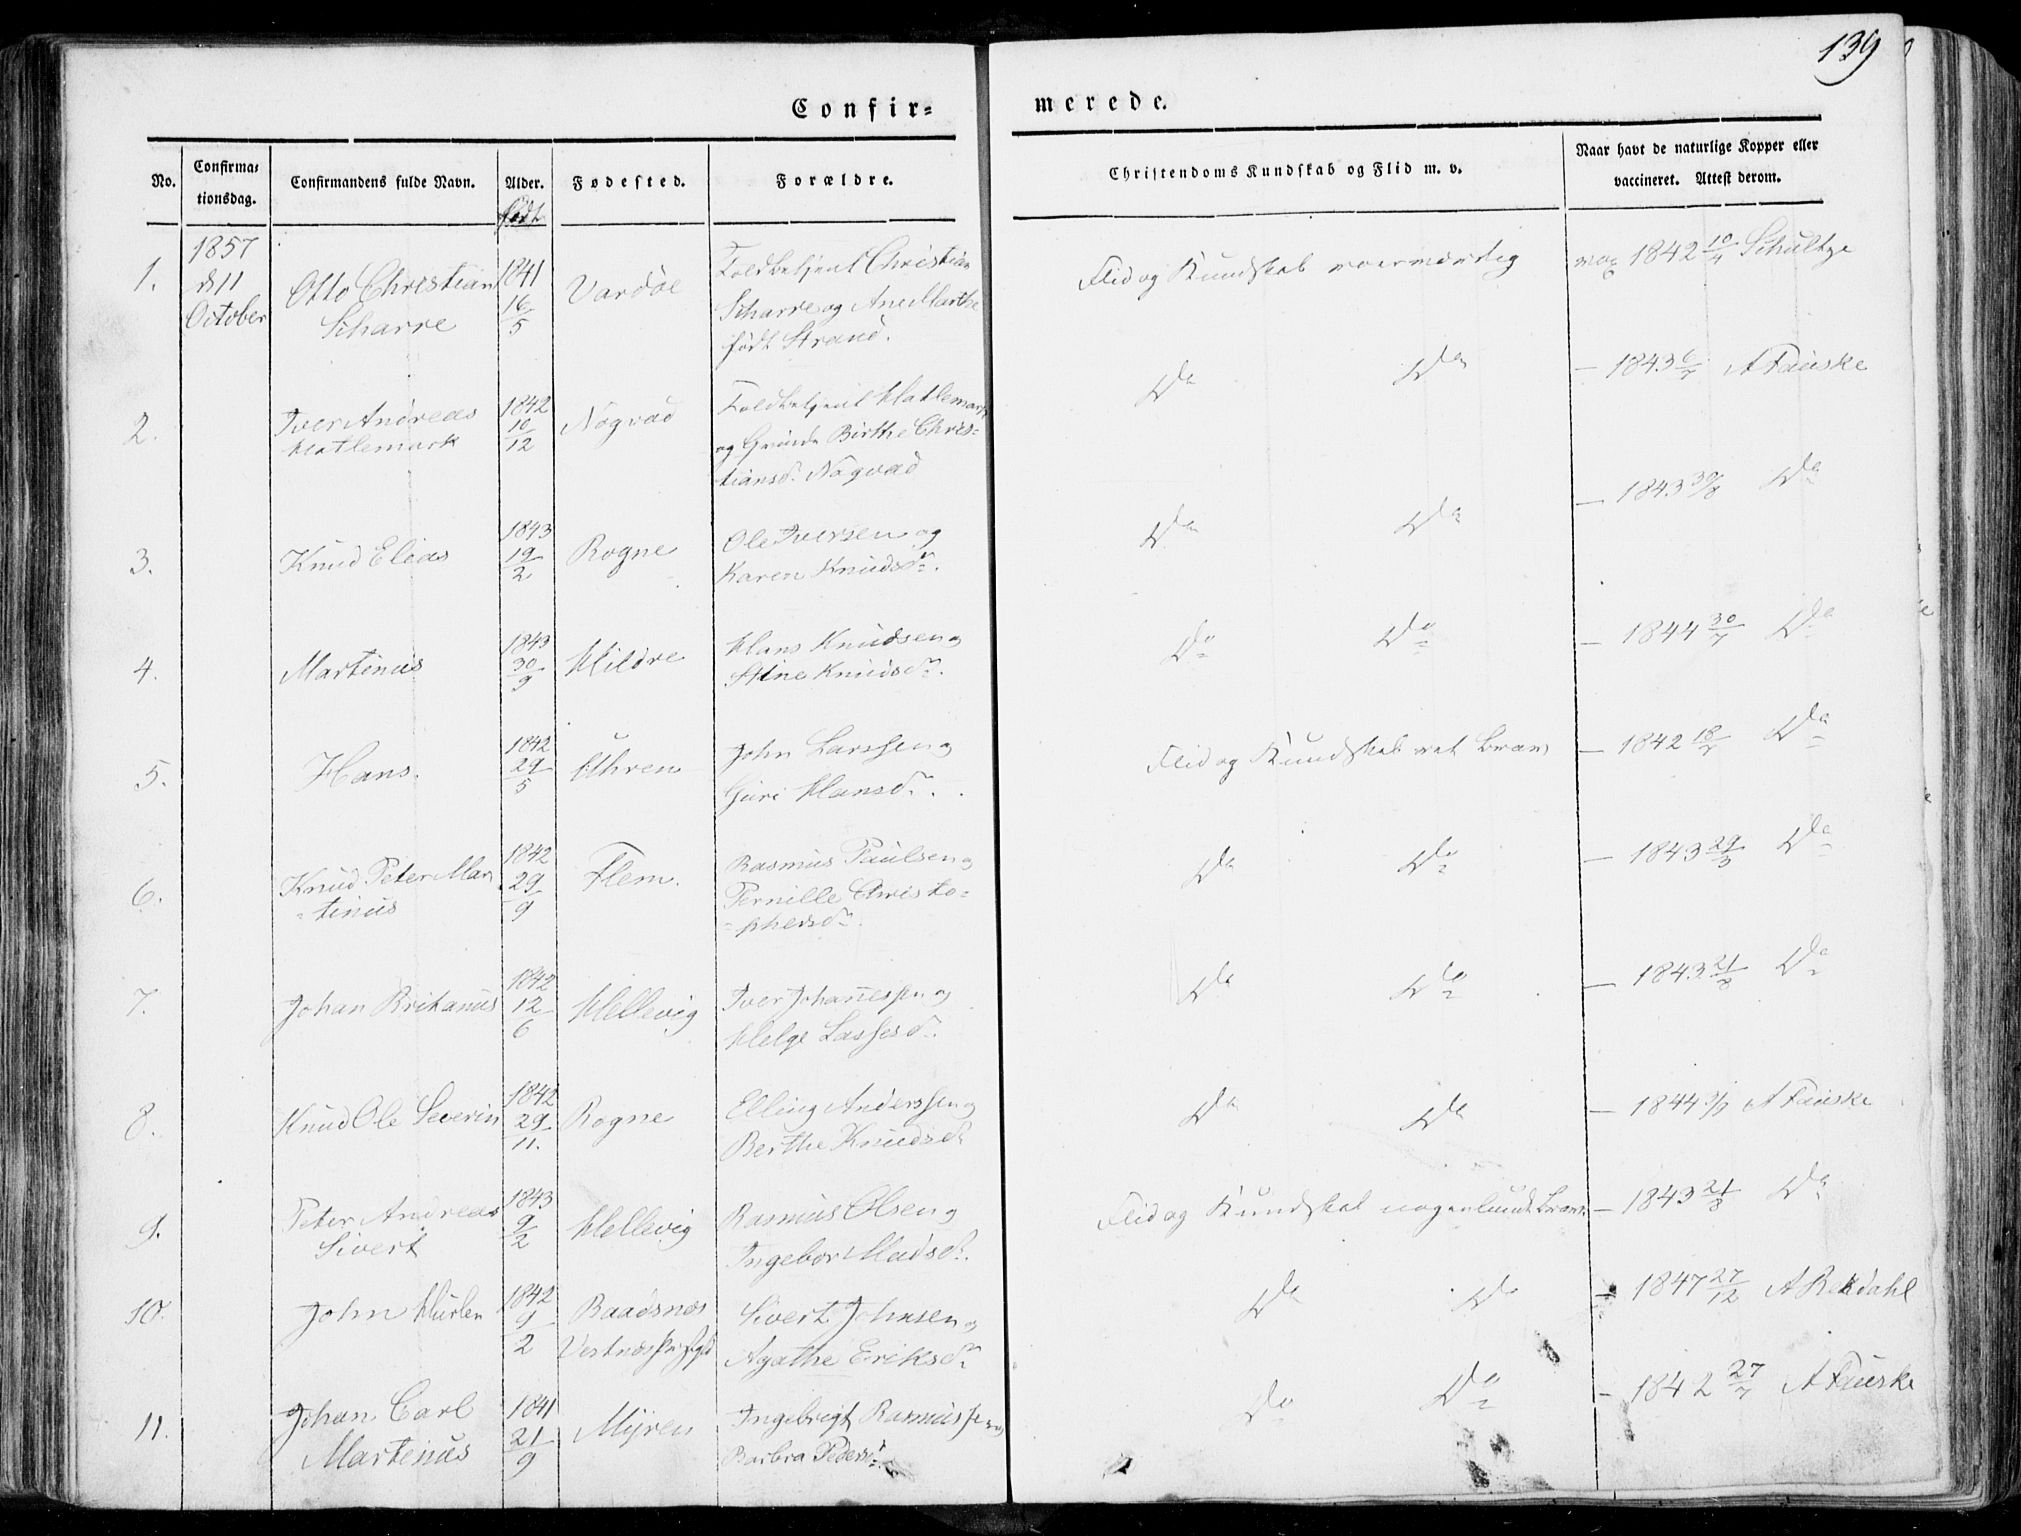 139
Confir=
merede.
No.
Confirma=
tionsdag.
Confirmandens fulde Navn.
Alder.
født
Fødested.
Forældre.
Christendoms Kundskab og Flid m. v.
Naar havt de naturlige Kopper eller
vaccineret. Attest derom.
1.
1857
d 11
October
Otto Christian
Scharre
1841
16/5
Vardöe
Toldbetjent Christian
Scharre og Ane Marthe
født Strand.
Flid og Kundskab
vac 1842 10/4 Schultze
2.
Iver Andreas
Hatlemark
1842
10/12
Nogvad
Toldbetjent Hatlemark
og Birthe Chris=
tiansd. Nogvad
Do Do
– 1843 6/7 A Fauske
3.
Knud Elias
1843
19/2
Rogne
Ole Iversen og
Karen Knudsdr.
Do Do
– 1843 30/8 Do
4.
Martinus
1843
30/9
Hildre
Hans Knudsen og
Stine Knudsdr.
Do Do
– 1844 30/7 Do
5.
Hans.
1842
29/5
Uhren
John Larssen og
Guri Hansdr.
Flid og Kundskab ret brav
– 1842 18/7 Do
6.
Knud Peter Mar
=tinus
1842
29/9
Flem.
Rasmus Paulsen og
Pernille Christo=
=phersdr.
Do Do
– 1843 29/3 Do
7.
Johan Britanus
1842
12/6
Hellevig
Iver Johanessen og
Helge Lassesdr.
Do Do
– 1843 21/8 Do
8.
Knud Ole Severin
1842
29/11.
Rogne
Elling Anderssen og
Berthe Knudsdr
Do Do
– 1844 A Fauske
9.
Peter Andreas
Sivert
1843
9/2
Hellevig
Rasmus Olsen og
Ingebor Madsdr.
Flid og Kundskab nogenlunde brav.
– 1843 21/8 Do
10.
John Hurlen
1842
9/2
Baadsnes
Sivert Johnsen og
Agathe Eriksdr
Do Do
– 1847 27/12 A Rekdahl
11.
Johan Carl
Martinus
1841
21/9
Myren
Ingebrigt Rasmussen og
Barbra Pedersdr.
Do Do
– 1842 27/7 A Fauske